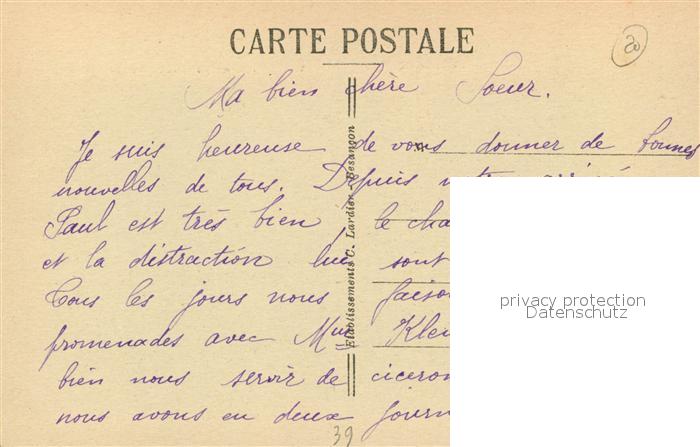 CARTE POSTALE
20
Ma bien chère Soeur.
Je suis heureuse de vous donner de bonnes
nouvelles de tous. Depuis notre
Paul est très bien, le cha
et la distraction lui sont
Tous les jours nous faiso
promenades avec Mme Kle
bien nous servir de ciceron
nous avons eu deux journ
39
Etablissements C. Lardier - Besançon
privacy protection
Datenschutz